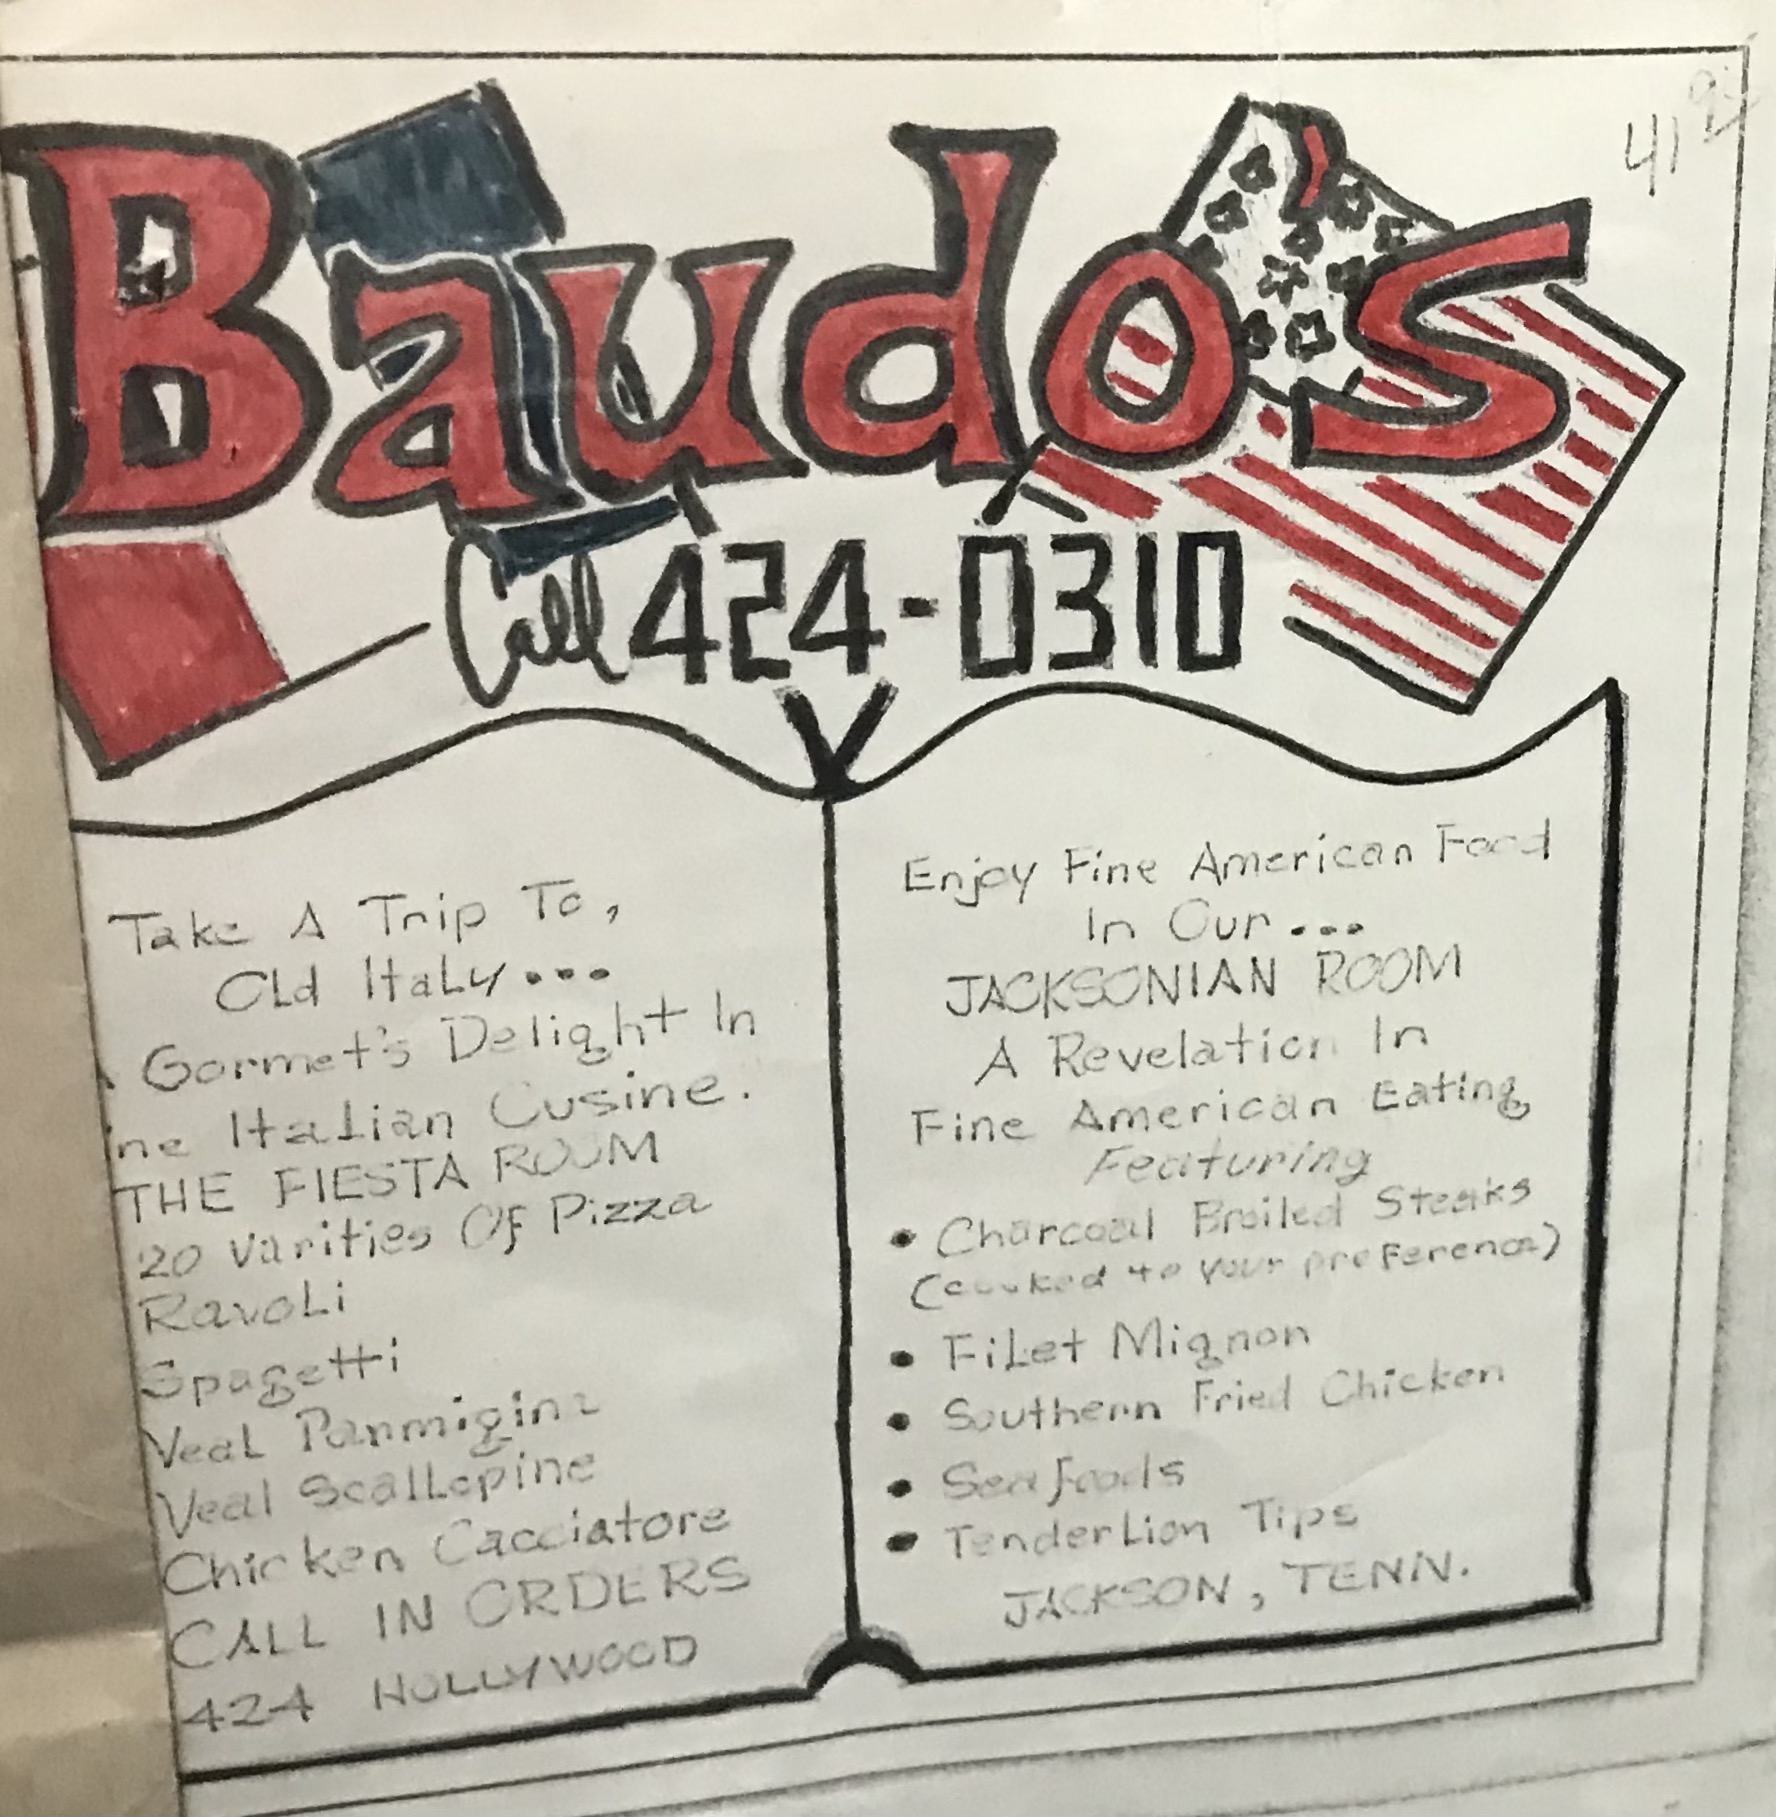 Baudo's
41
Call 424-0310
Take A Trip To,
Old Italy...
Gormet's Delight In
ine Italian Cusine.
THE FIESTA ROOM
20 Varities Of Pizza
Ravoli
Spagetti
Veal Parmigina
Veal Scallopine
Chicken Cacciatore
CALL IN ORDERS
424 HOLLYWOOD
Enjoy Fine American Food
In Our...
JACKSONIAN ROOM
A Revelation In
Fine American Eating
Featuring
• Charcoal Broiled Steaks
(cooked to your preference)
• Filet Mignon
• Southern Fried Chicken
• Sea foods
• Tenderlion Tips
JACKSON, TENN.